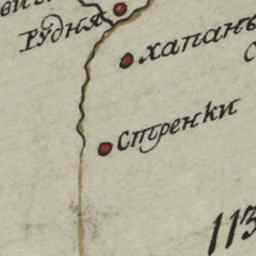 Рудня
хапань
стренки
113